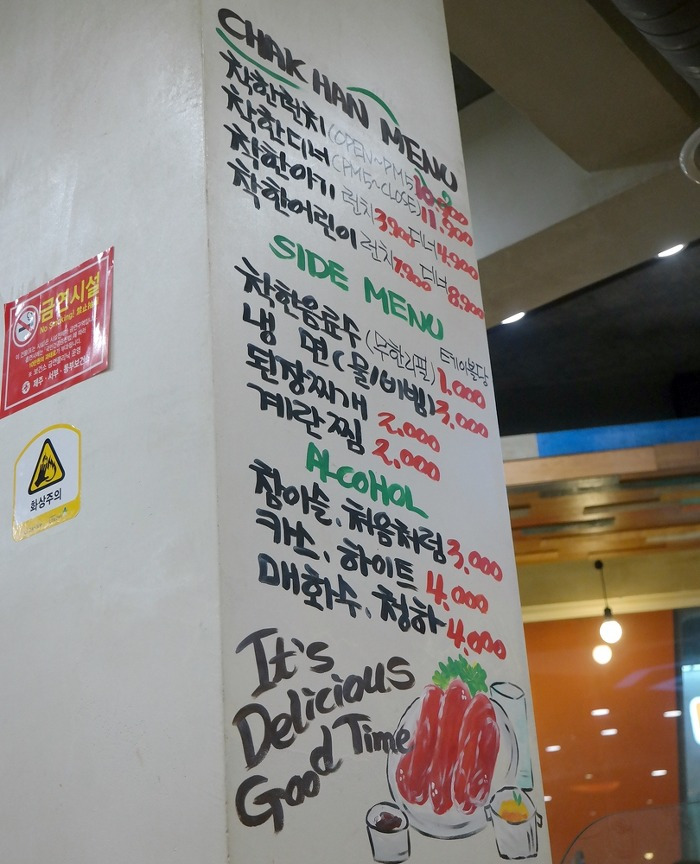 CHAK HAN MENU
착한런치 (OPEN~PM5) 10.900
착한디너 (PM5~CLOSE) 11.900
착한아기 런치 3.900 디너 4.900
착한어린이 런치 7.900 디너 8.900
SIDE MENU
착한음료수 (무한리필) 테이블당 1.000
냉 면 (물/비빔) 3.000
된장찌개 2.000
계란찜 2.000
ALCOHOL
참이슬, 처음처럼 3.000
카스, 하이트 4.000
매화수, 청하 4.000
It's
Delicious
Good Time
금연시설
No Smoking! 禁止吸烟
제주·서부·동부보건소
화상주의